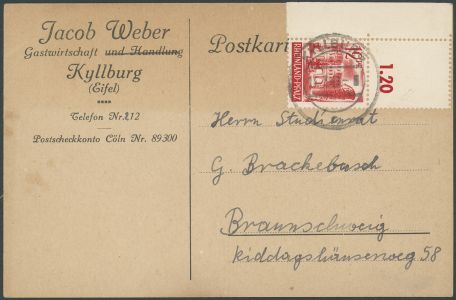 Jacob Weber
Gastwirtschaft und Handlung
Kyllburg
(Eifel)
Telefon Nr. 212
Postscheckkonto Cöln Nr. 89300
Postkarte
RHEINLAND-PFALZ
12
1.20
Herrn Studienrat
G. Brackebusch
Braunschweig
Riddagshäuserweg 58